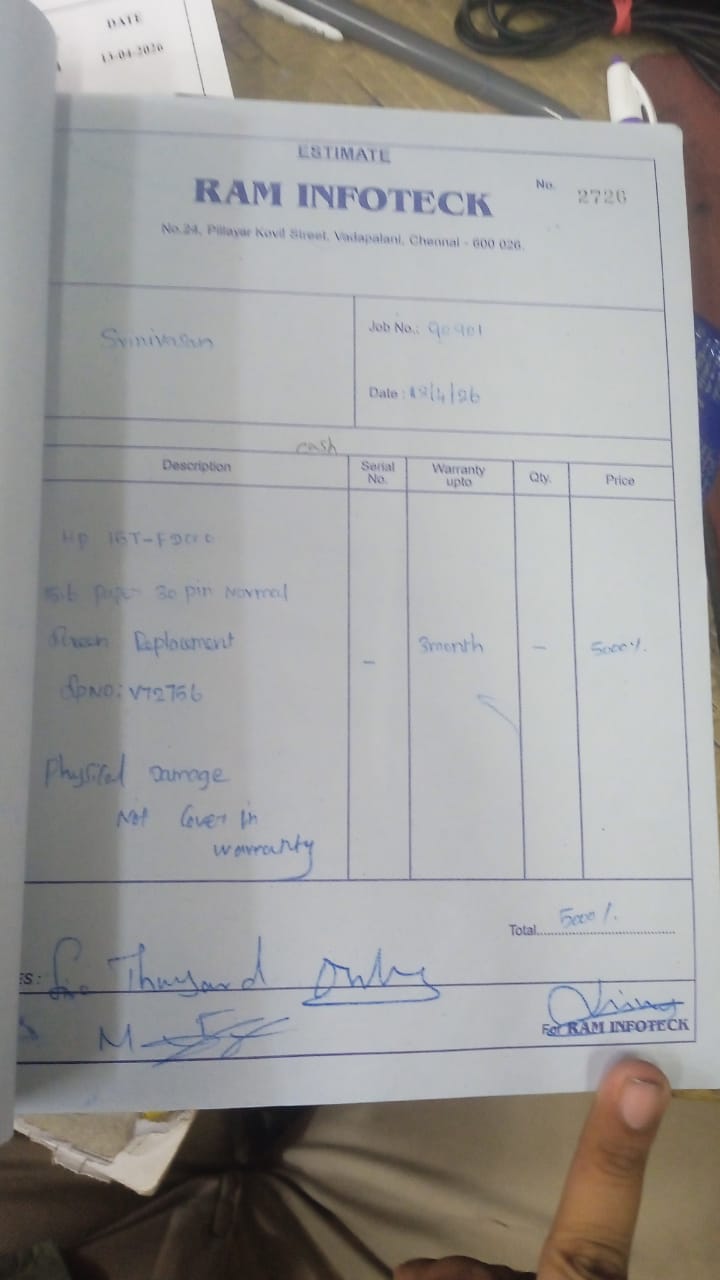 DATE
13-04-2026
ESTIMATE
RAM INFOTECK
No. 2726
No.24, Pillayar Kovil Street, Vadapalani, Chennai - 600 026.
Srinivasan
Job No.: 90901
Date : 13/4/26
cash
Description Serial No. Warranty upto Qty. Price
Hp 15T-
15.6 Paper 30 pin Normal
Screen Replacement - 3month - 5000/.
SPNO: V72756
Physical Damage
Not Cover in
warranty
Total 5000/.
ES: Thousand Only
For RAM INFOTECK